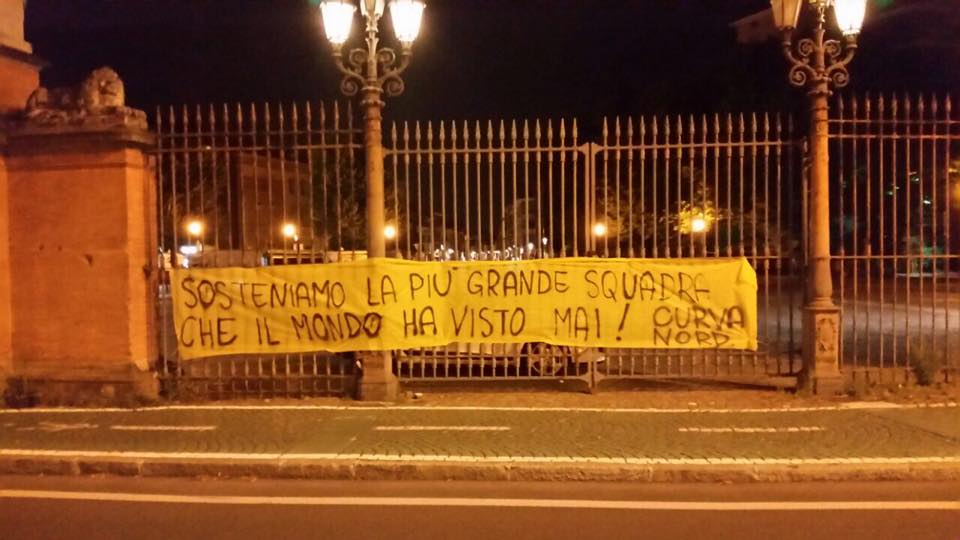 SOSTENIAMO LA PIU' GRANDE SQUADRA
CHE IL MONDO HA VISTO MAI! CURVA
NORD